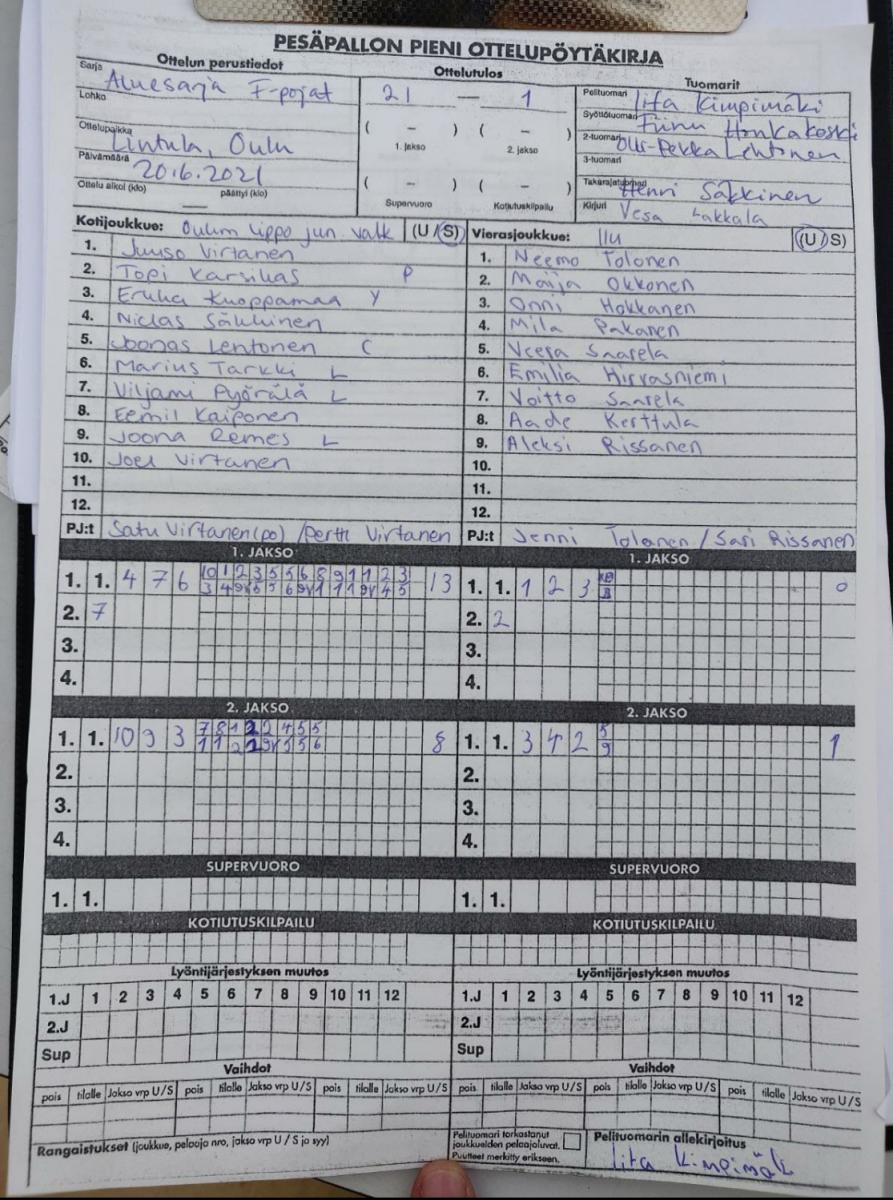 PESÄPALLON PIENI OTTELUPÖYTÄKIRJA
Ottelun perustiedot
Sarja Aluesarja F-pojat
Lohko
Ottelupaikka Lintula, Oulu
Päivämäärä 20.6.2021
Ottelu alkoi (klo) päättyi (klo)
Ottelutulos
21 — 1
( – ) ( – )
1. jakso 2. jakso
( – ) ( – )
Supervuoro Kotiutuskilpailu
Tuomarit
Pelituomari Iita Kimpimäki
Syöttötuomari Honkakoski
2-tuomari Olli-Pekka Lehtonen
3-tuomari
Takarajatuomari Henri Säkkinen
Kirjuri Vesa Lakkala
Kotijoukkue: Oulun Lippo jun valk (U / S)
1. Juuso Virtanen
2. Topi Karsikas P
3. Kuoppamaa Y
4. Niclas Säkkinen
5. Joonas Lehtonen C
6. Marius Tarkki L
7. Viljami Pyörälä L
8. Eemil Kaiponen
9. Joona Remes L
10. Joel Virtanen
11.
12.
PJ:t Satu Virtanen (po) / Pertti Virtanen
Vierasjoukkue: IIU (U / S)
1. Neemo Tolonen
2. Maija Okkonen
3. Onni Hokkanen
4. Mila Pakanen
5. Veera Saarela
6. Emilia Hirvasniemi
7. Voitto Saarela
8. Aade Kerttula
9. Aleksi Rissanen
10.
11.
12.
PJ:t Jenni Tolonen / Sari Rissanen
1. JAKSO
1. 1. 4 7 6 10 1 2 3 5 5 6 8 9 1 1 2 3 13
2. 7
3.
4.
1. JAKSO
1. 1. 1 2 3 0
2. 2
3.
4.
2. JAKSO
1. 1. 10 9 3 7 8 1 2 2 4 5 5 8
2.
3.
4.
2. JAKSO
1. 1. 3 4 2 5 1
9
2.
3.
4.
SUPERVUORO
1. 1.
SUPERVUORO
1. 1.
KOTIUTUSKILPAILU
KOTIUTUSKILPAILU
Lyöntijärjestyksen muutos
1.J 1 2 3 4 5 6 7 8 9 10 11 12
2.J
Sup
Lyöntijärjestyksen muutos
1.J 1 2 3 4 5 6 7 8 9 10 11 12
2.J
Sup
Vaihdot
pois tilalle Jakso vrp U/S pois tilalle Jakso vrp U/S pois tilalle Jakso vrp U/S
Vaihdot
pois tilalle Jakso vrp U/S pois tilalle Jakso vrp U/S pois tilalle Jakso vrp U/S
Rangaistukset (joukkue, pelaaja nro, jakso vrp U / S ja syy)
Pelituomari tarkastanut
joukkueiden pelaajaluvat.
Puutteet merkitty erikseen.
Pelituomarin allekirjoitus
Iita Kimpimäki